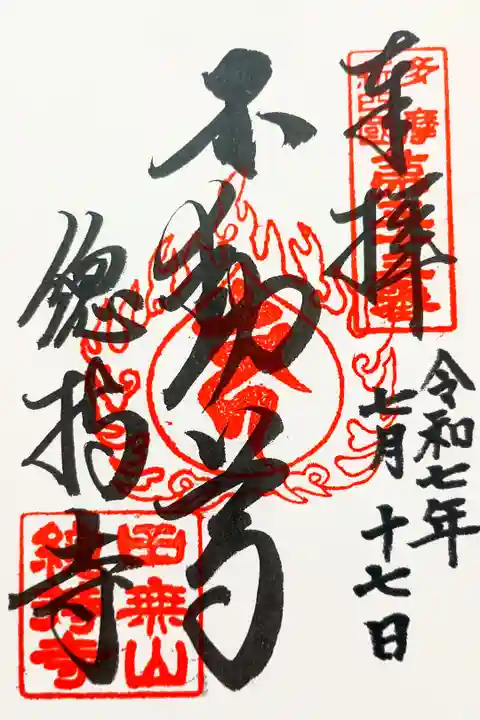 奉拝
多摩
新四國
令和七年
七月十七日
不動尊
總持寺
田無山
總持寺